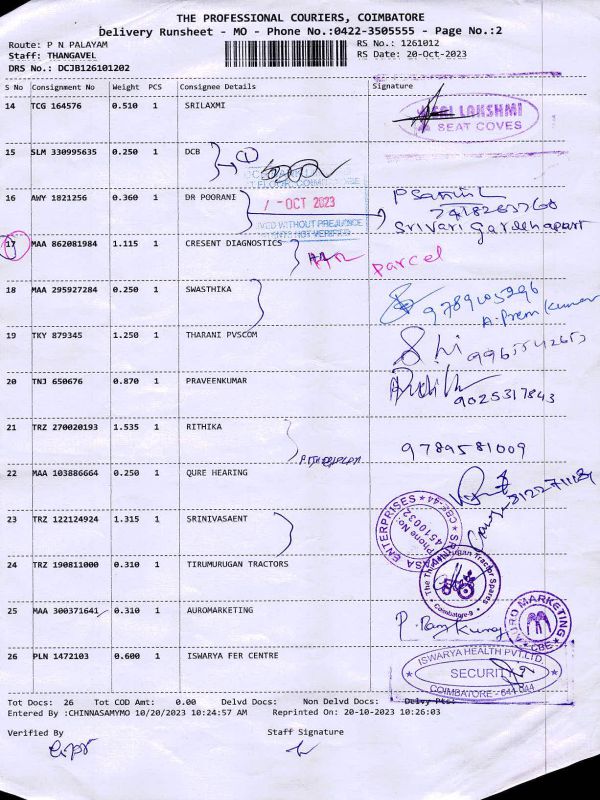 THE PROFESSIONAL COURIERS, COIMBATORE
Delivery Runsheet - MO - Phone No.:0422-3505555 - Page No.:2
Route: P N PALAYAM RS No.: 1261012
Staff: THANGAVEL RS Date: 20-Oct-2023
DRS No.: DCJB126101202
S No Consignment No Weight PCS Consignee Details Signature
14 TCG 164576 0.510 1 SRILAXMI
SRI LAKSHMI
SEAT COVES
15 SLM 330995635 0.250 1 DCB
16 AWY 1821256 0.360 1 DR POORANI
OCT 2023
WITHOUT PREJUDICE
Srivari Gardenapart
17 MAA 862081984 1.115 1 CRESENT DIAGNOSTICS
Parcel
18 MAA 295927284 0.250 1 SWASTHIKA
9789605296
A. Prem Kumar
19 TKY 879345 1.250 1 THARANI PVSCOM
20 TNJ 650676 0.870 1 PRAVEENKUMAR
9025317843
21 TRZ 270020193 1.535 1 RITHIKA
9789581009
22 MAA 103886664 0.250 1 QURE HEARING
23 TRZ 122124924 1.315 1 SRINIVASAENT
ENTERPRISES ★ CBE-44 ★
Phone No:
4510032
24 TRZ 190811000 0.310 1 TIRUMURUGAN TRACTORS
The Thirumurugan Tractor Spares
Coimbatore-9
25 MAA 300371641 0.310 1 AUROMARKETING
AURO MARKETING
CBE
26 PLN 1472103 0.600 1 ISWARYA FER CENTRE
ISWARYA HEALTH PVT.LTD.
SECURITY
COIMBATORE - 641 044
Tot Docs: 26 Tot COD Amt: 0.00 Delvd Docs: Non Delvd Docs: Delvy Pts:
Entered By :CHINNASAMYMO 10/20/2023 10:24:57 AM Reprinted On: 20-10-2023 10:26:03
Verified By Staff Signature